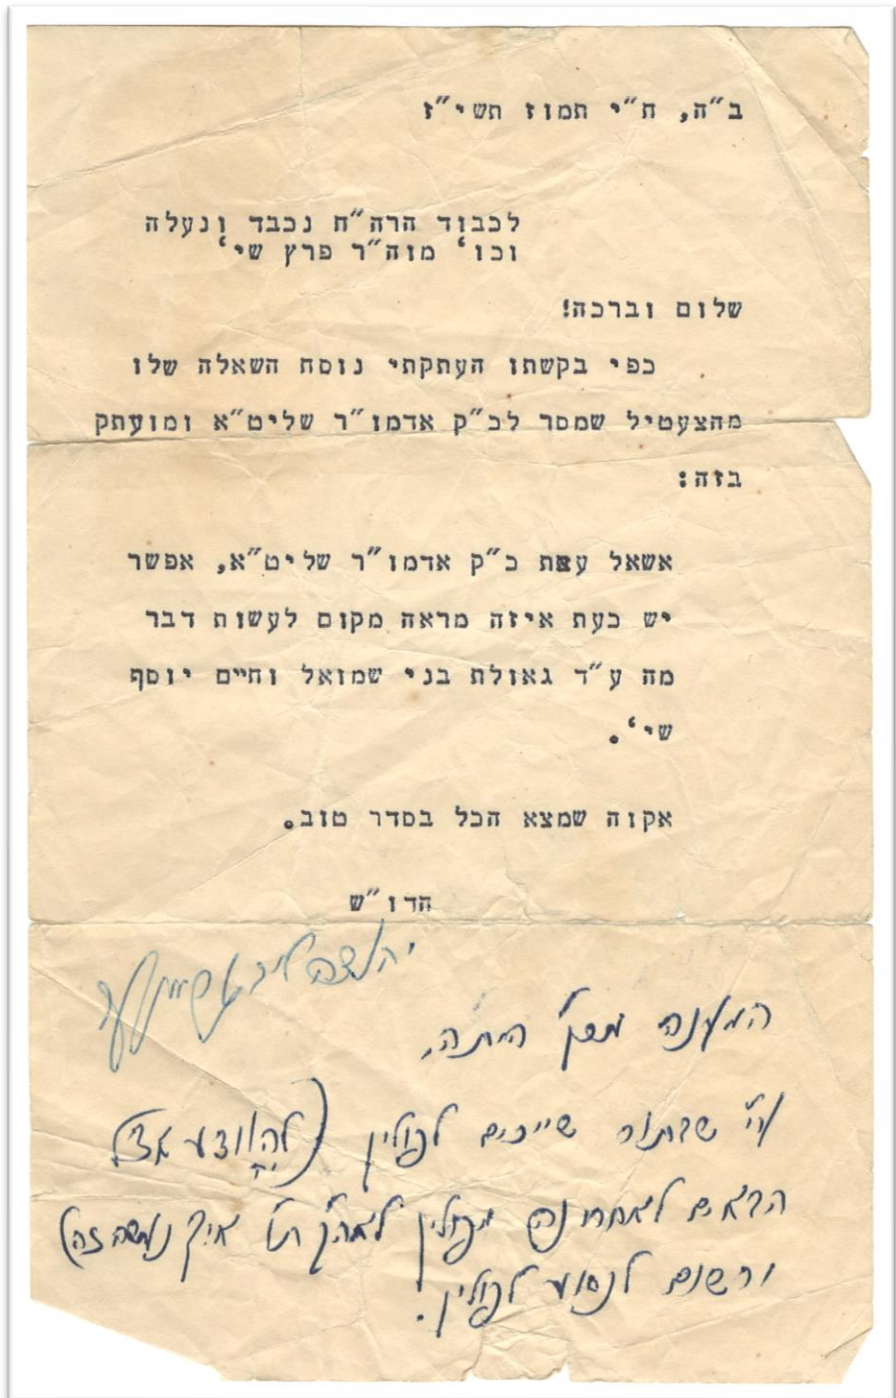 ב"ה, ח"י תמוז תשי"ז
לכבוד הרה"ח נכבד ונעלה
וכו' מוה"ר פרץ שי'
שלום וברכה!
כפי בקשתו העתקתי נוסח השאלה שלו
מהצעטיל שמסר לכ"ק אדמו"ר שליט"א ומועתק
בזה:
אשאל עצת כ"ק אדמו"ר שליט"א, אפשר
יש כעת איזה מראה מקום לעשות דבר
מה ע"ד גאולת בני שמואל וחיים יוסף
שי'.
אקוה שמצא הכל בסדר טוב.
הדו"ש
יהודה ליב
המענה מכ"ק היתה,
שבתור שייכים לפולין (להוודע אצל
הבאים לאחרונה מפולין לאה"ק ת"ו איך נעשה זה)
ורשום לנסוע לפולין.